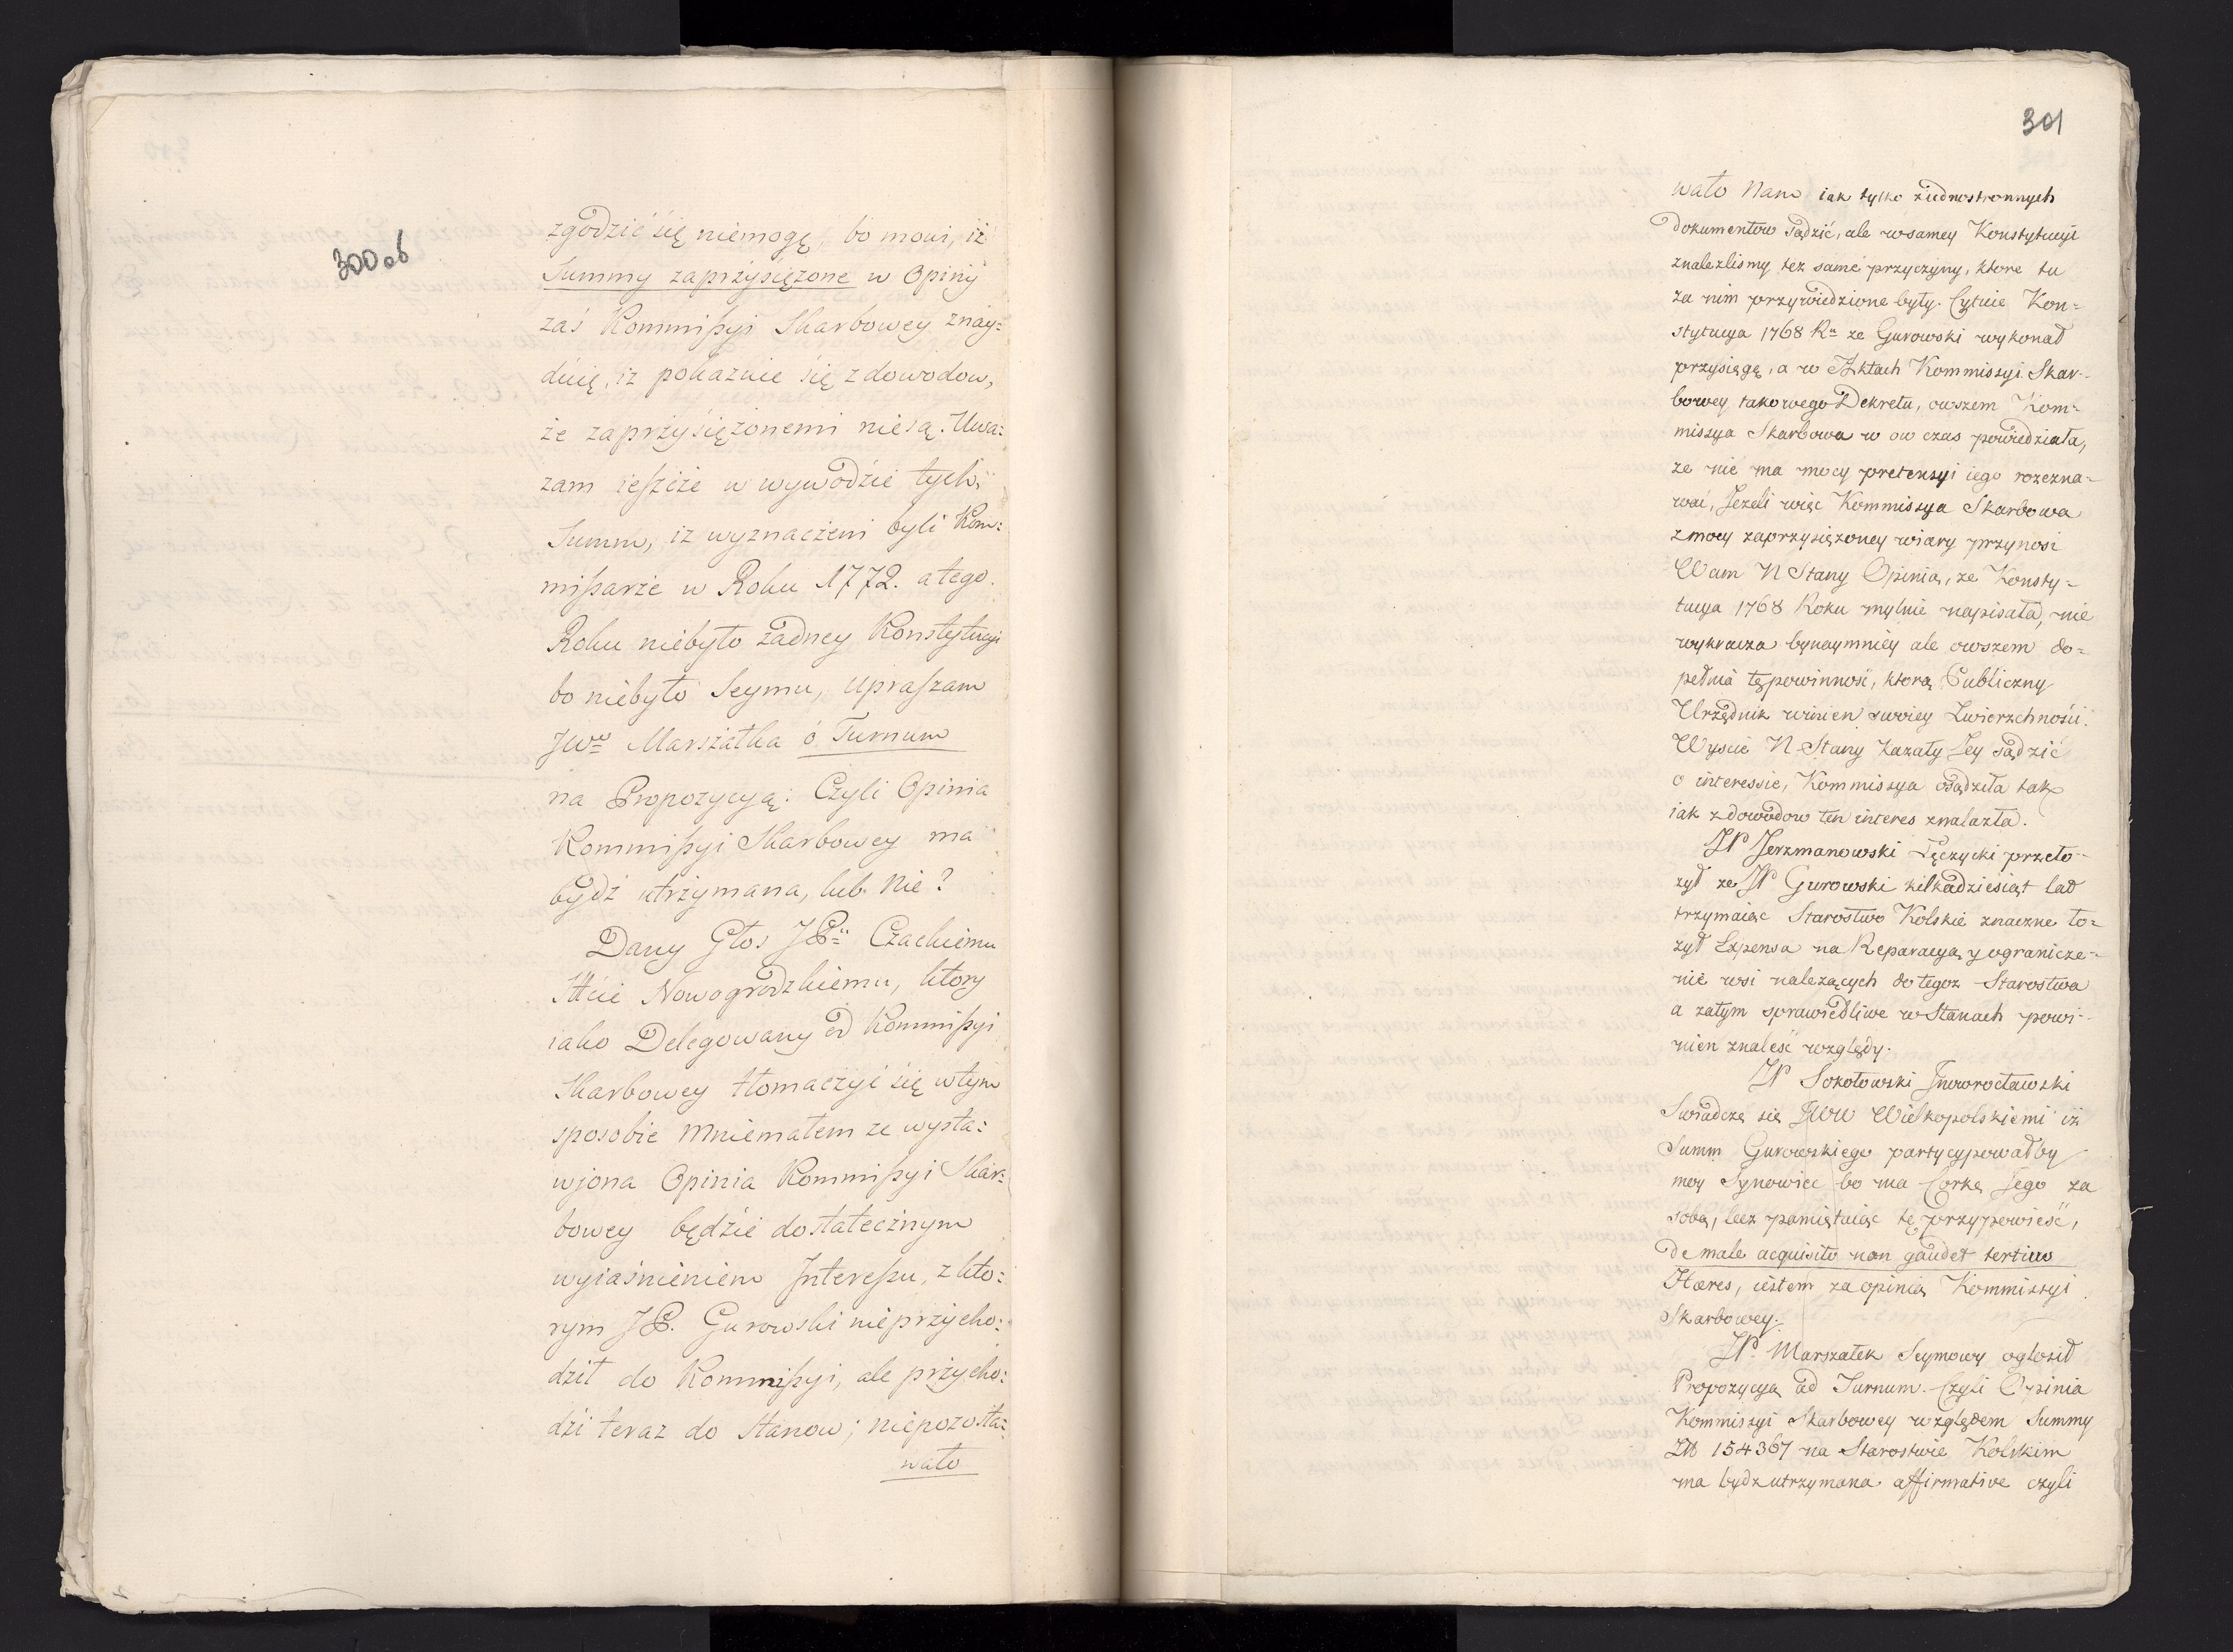 300 ob
zgodzić się niemogę, bo mowi, iż
Summy zaprzysiężone w Opinij
zaś Kommissyi Skarbowey znay=
duię, iż pokazuie się z dowodow,
że zaprzysiężonemi niesą. Uwa=
zam ieszcze w wywodzie tych
Summ, iz wyznaczeni byli Kom=
missarze w Roku 1772. a tego
Roku niebyło żadney Konstytucyi
bo niebyło Seymu, upraszam
JWo Marszałka o Turnum
na Propozycyą: Czyli Opinia
Kommissyi Skarbowey ma
bydź utrzymana, lub Nie?
Dany Głos JPu Czackiemu
Nowogrodzkiemu, ktory
iako Delegowany od Kommissyi
Skarbowey tłomaczył się w tym
sposobie Mniemałem ze wysta=
wjona Opinia Kommissyi Skar=
bowey będzie dostatecznym
wyiaśnieniem Interessu, z kto=
rym JP. Gurowski nieprzycho=
dził do Kommissyi, ale przycho=
dzi teraz do Stanow; niepozosta=
wało
301
wało Nam iak tylko ziednostronnych
Dokumentow Sądzić, ale w samey Konstytucyi
znalezlismy też same przyczyny, ktore tu
za nim przywiedzione były. Cytuie Kon=
stytucya 1768 Ru ze Gurowski wykonał
przysięgę, a w Aktach Kommissyi Skar=
bowey takowego Dekretu, owszem Kom=
missya Skarbowa w ow czas powiedziała,
ze nie ma mocy pretensyi iego rozezna=
wać, Jezeli więc Kommissya Skarbowa
z mocy zaprzysiężoney wiary przynosi
Wam N Stany Opinią, ze Konsty=
tucya 1768 Roku mylnie napisała, nie
wykracza bynaymniey ale owszem do=
pełnia tę powinność, ktorą Publiczny
Urzędnik winien swoiey Zwierzchności.
Wyscie N. Stany kazały Jey sądzić
o interessie, Kommissya osądziła tak
iak z dowodow ten interes znalazła.
JP Jerzmanowski Łęczycki przeło=
zył ze JP Gurowski kilkadziesiąt lat
trzymaiąc Starostwo Kolskie znaczne ło=
zył Expensa na Reparacyą y ogranicze=
nie wsi nalezących do tegoz Starostwa
a zatym sprawiedliwe w Stanach powi=
nien znaleść względy.
JP Sokołowski Jnowrocławski
Swiadczę się JWW Wielkopolskiemi iż
Summ Gurowskiego partycypowałby
moy Synowiec bo ma Corkę Jego za
sobą, lecz pamiętaiąc tę przypowieść,
De male acquisito non gaudet tertius
Hæres, iestem za opinią Kommissyi
Skarbowey.
JP. Marszałek Seymowy ogłosił
Propozycyą ad Turnum. Czyli Opinia
Kommissyi Skarbowey względem Summy
Zło 154367 na Starostwie Kolskim
ma bydz utrzymana affirmative czyli